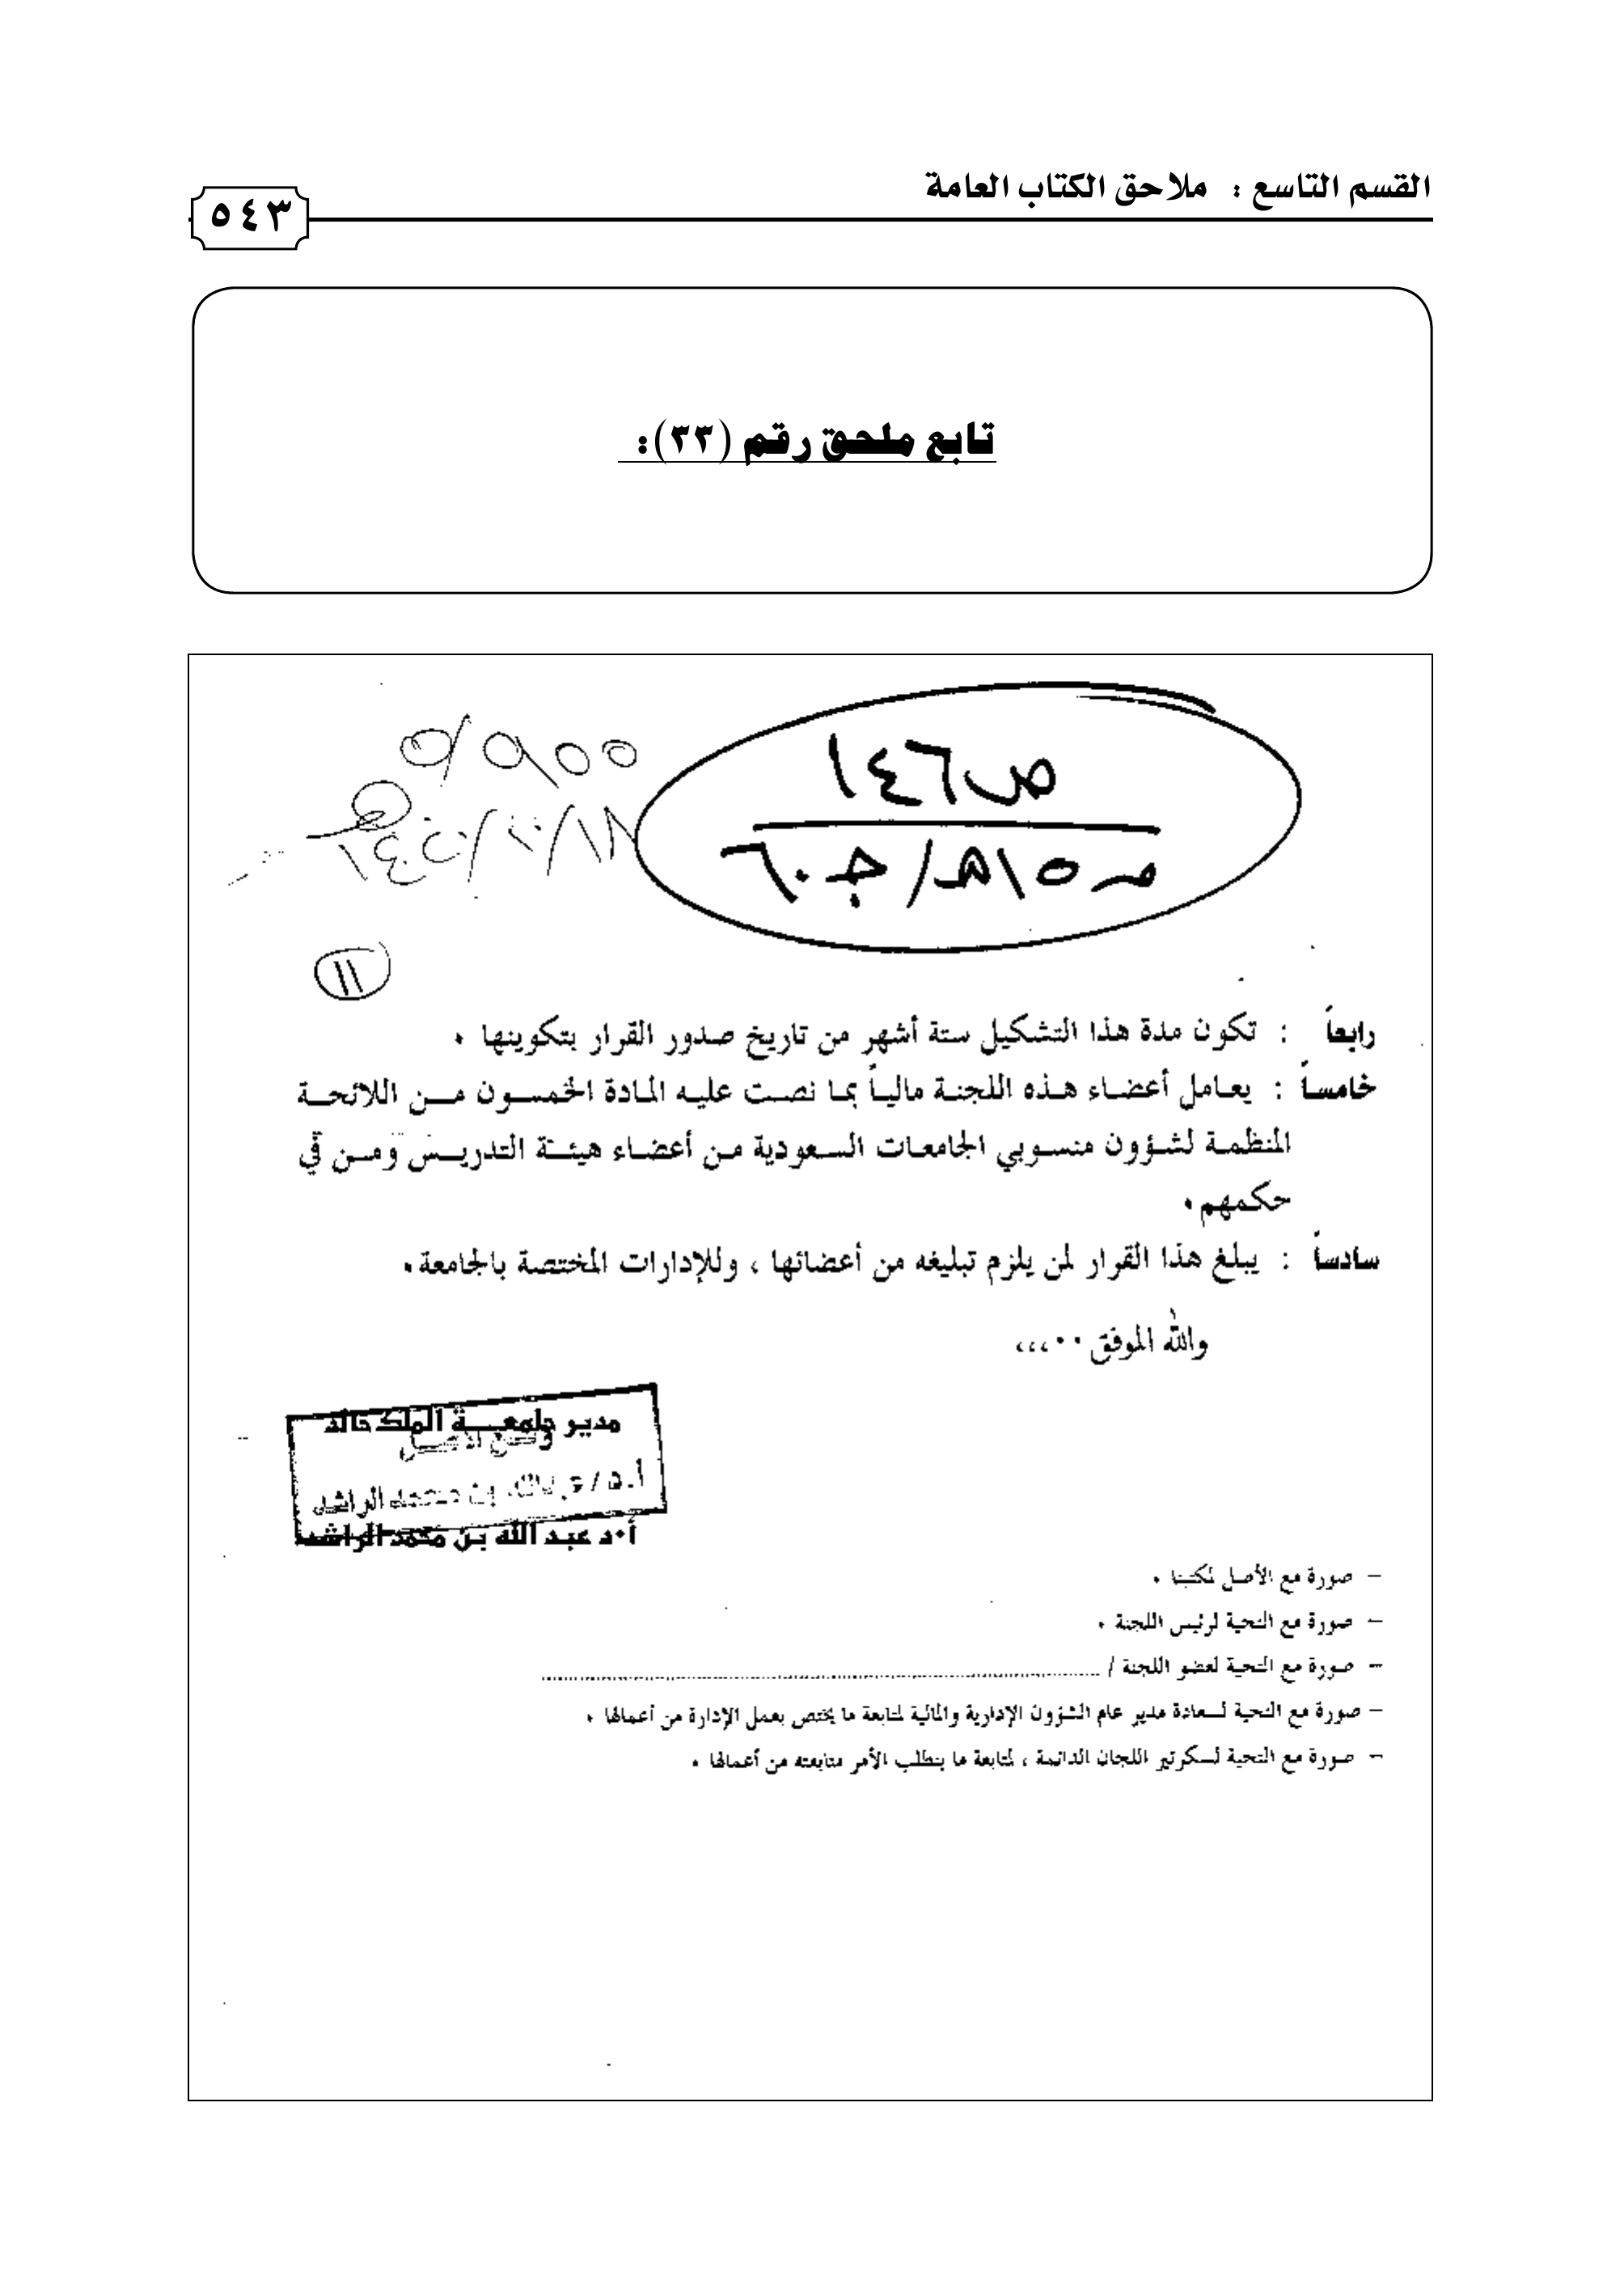 القسم التاسع : ملاحق الكتاب العامة
٥٤٣
تابع ملحق رقم (٣٣):
ص١٤٦
١١
رابعاً : تكون مدة هذا التشكيل ستة أشهر من تاريخ صدور القرار بتكوينها .
خامساً : يعامل أعضاء هذه اللجنة مالياً بما نصت عليه المادة الخمسون من اللائحة
المنظمة لشؤون منسوبي الجامعات السعودية من أعضاء هيئة التدريس ومن في
حكمهم .
سادساً : يبلغ هذا القرار لمن يلزم تبليغه من أعضائها ، وللإدارات المختصة بالجامعة .
والله الموفق ..،،،
مدير جامعة الملك خالد
بن محمد الراشد
أ.د عبد الله بن محمد الراشد
– صورة مع الأصل لمكتبنا .
– صورة مع التحية لرئيس اللجنة .
– صورة مع التحية لعضو اللجنة / ........................................
– صورة مع التحية لسعادة مدير عام الشؤون الإدارية والمالية لمتابعة ما يختص بعمل الإدارة من أعمالها .
– صورة مع التحية لسكرتير اللجان الدائمة ، لمتابعة ما يتطلب الأمر متابعته من أعمالها .